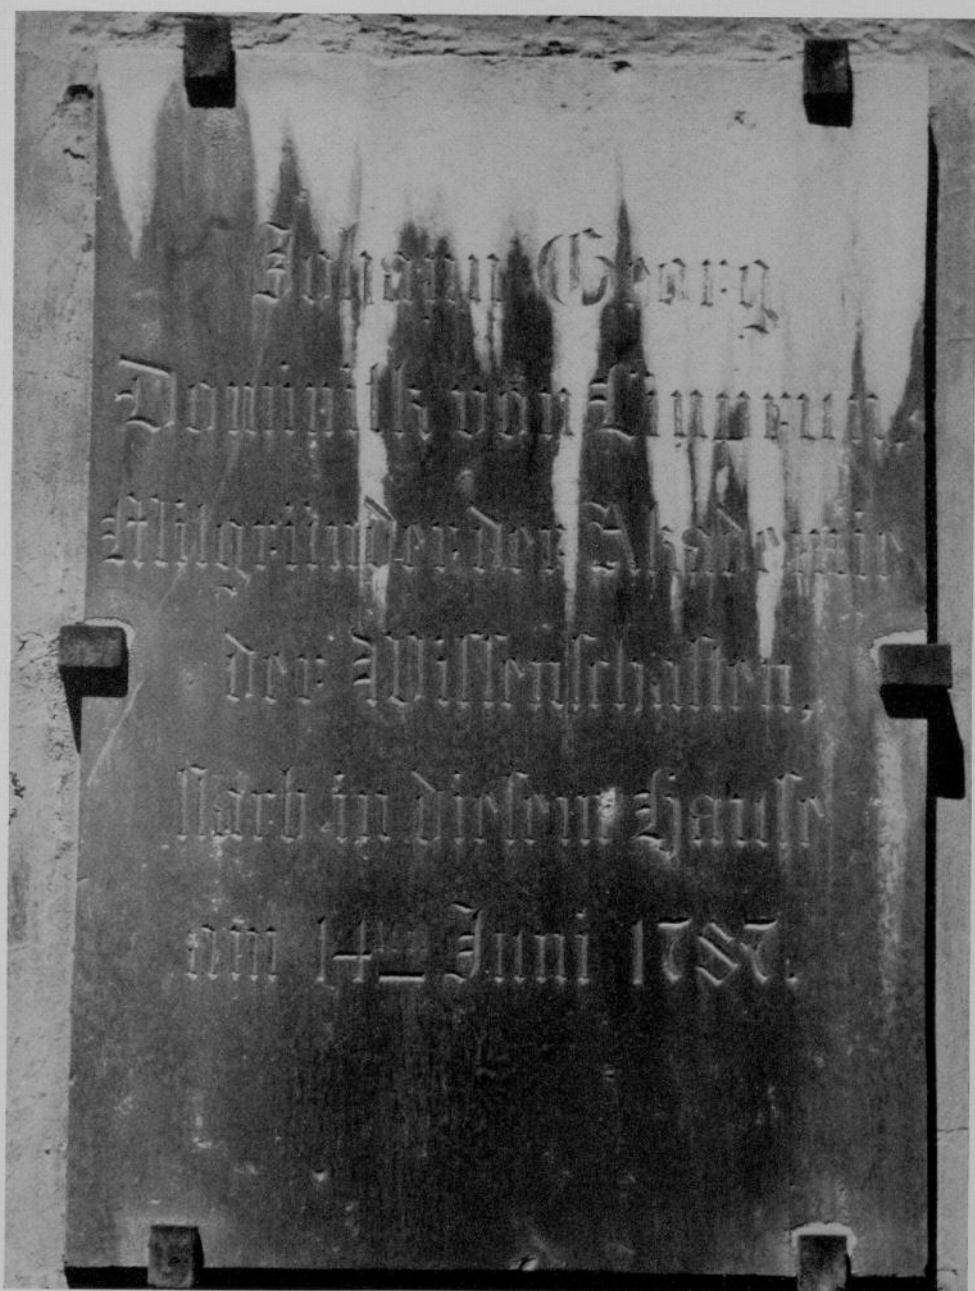 Johann Georg
Dominik von Linprun,
Mitgründer der Akademie
der Wissenschaften,
starb in diesem Hause
am 14ten Juni 1787.